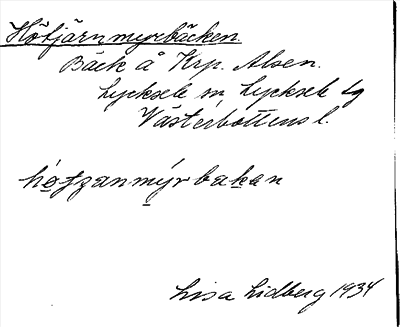 Hötjärnmyrbäcken.
Bäck å Krp. Alsen.
Lycksele sn Lycksele lg
Västerbottens l.
hötzanmýrbakan
Lisa Lidberg 1934